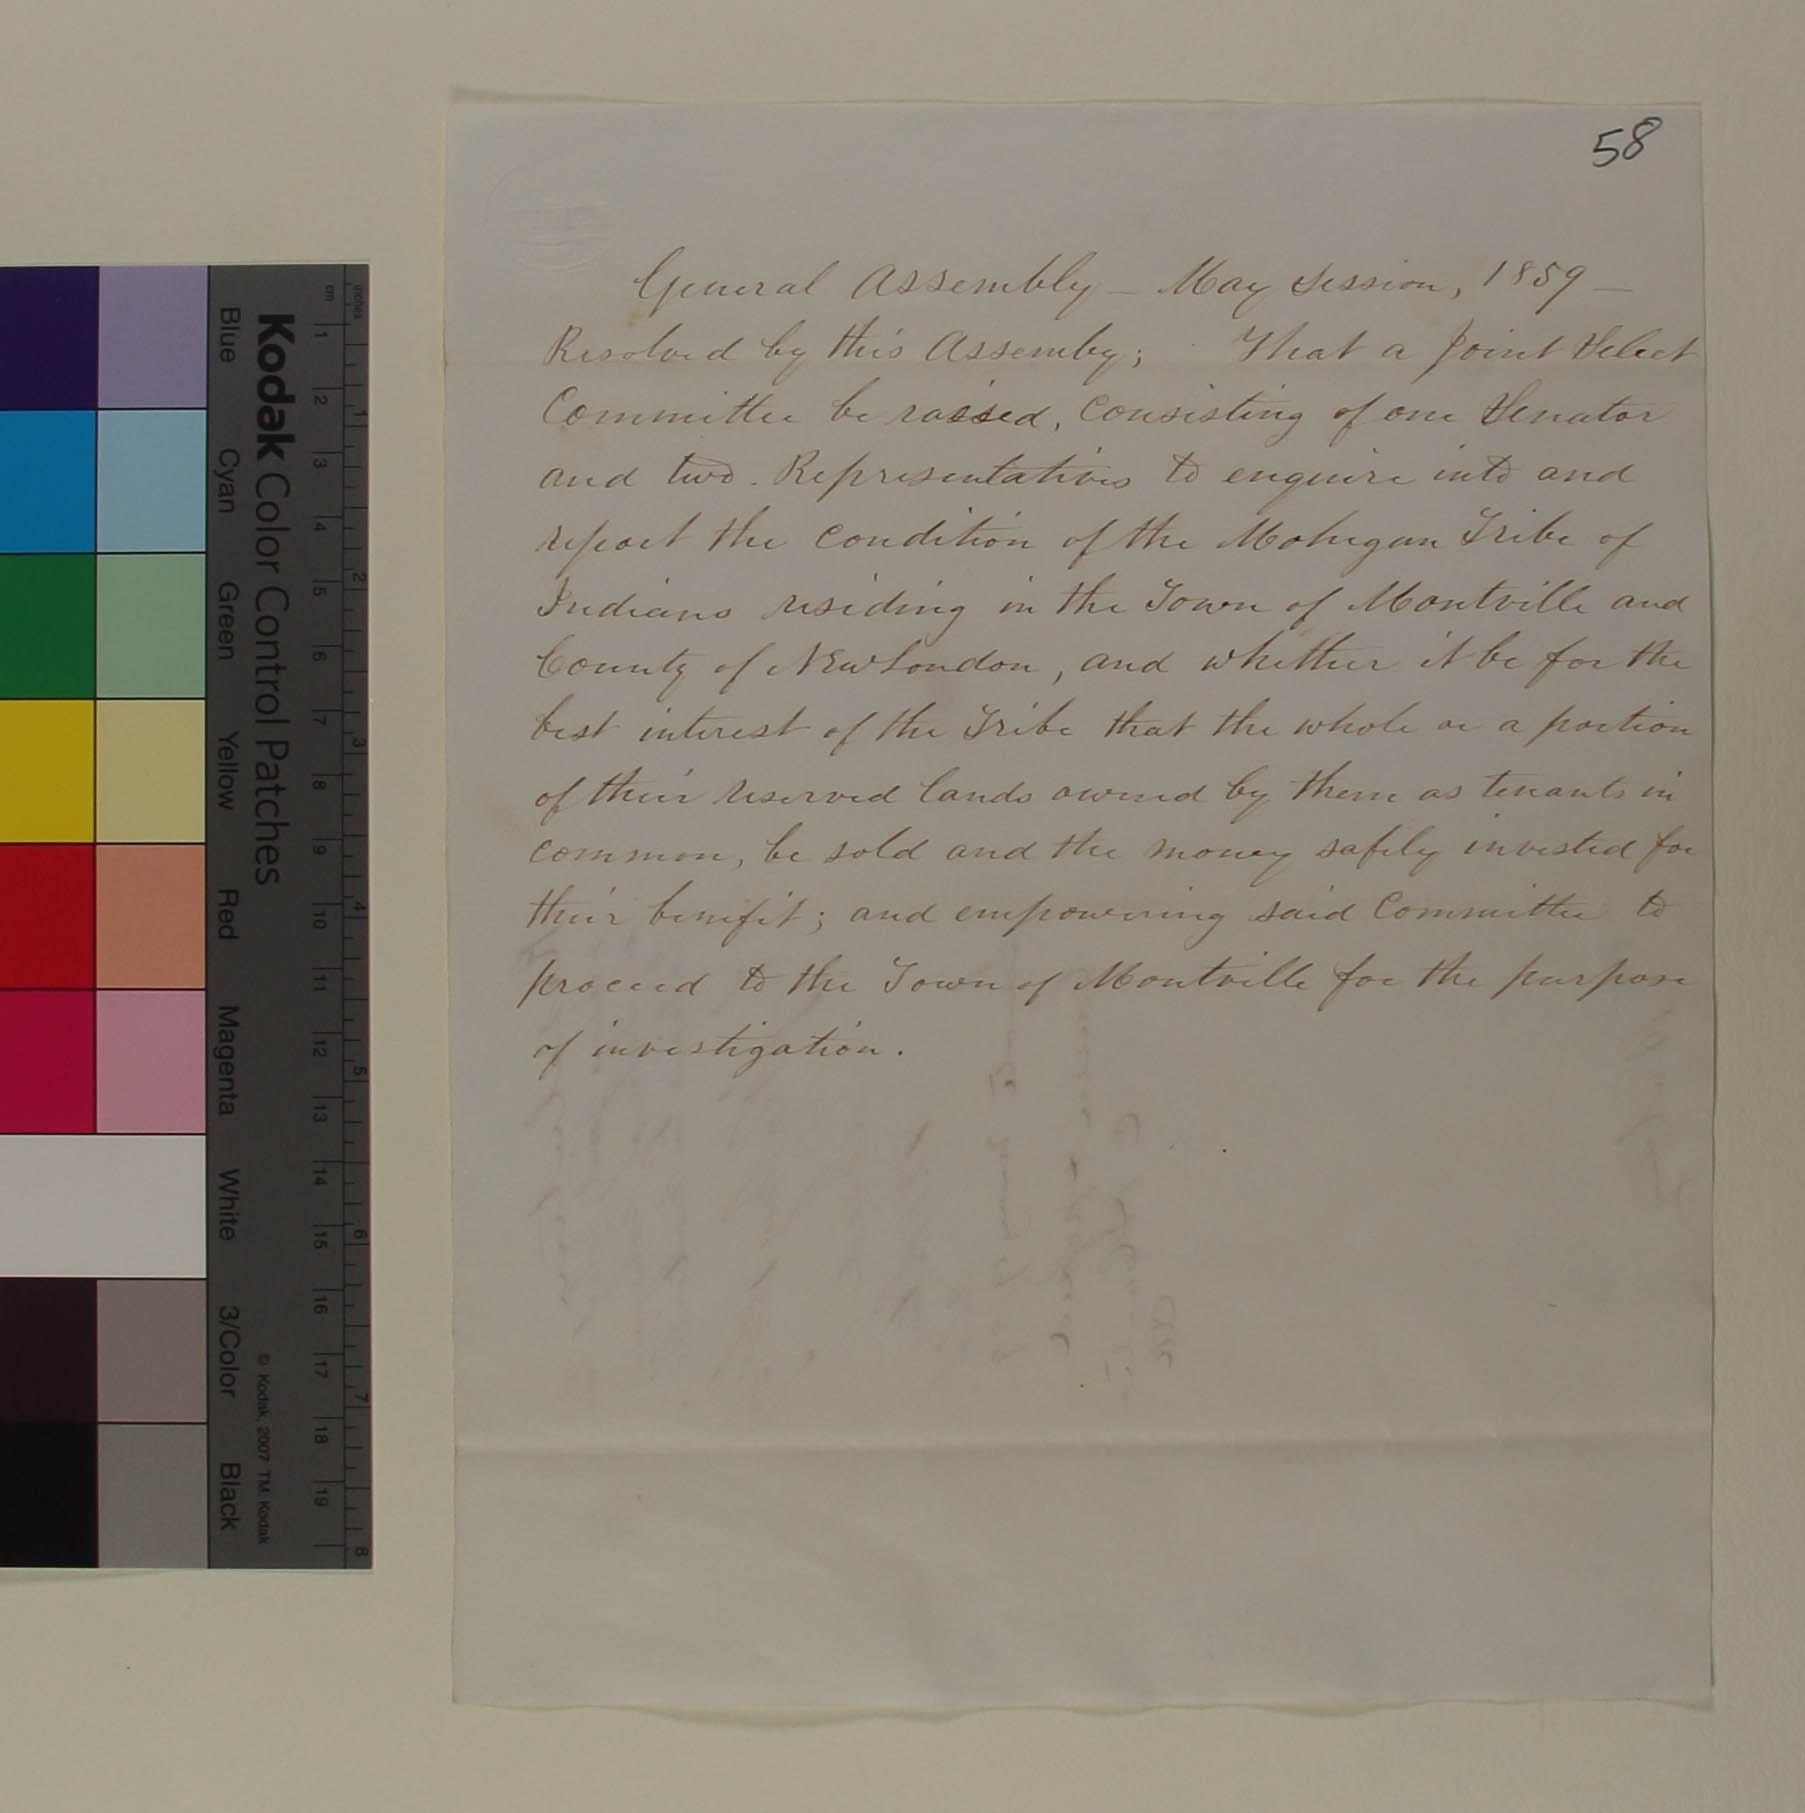 58
General Assembly – May Session, 1859 –
Resolved by this Assemby; That a Joint Select
Committee be raised, Consisting of one Senator
and two Representatives to enquire into and
report the condition of the Mohegan Tribe of
Indians residing in the Town of Montville and
County of New London, and whether it be for the
best interest of the Tribe that the whole or a portion
of their reserved lands owned by them as tenants in
common, be sold and the money safely invested for
their benefit; and empowering said Committee to
proceed to the Town of Montville for the purpose
of investigation.
Kodak Color Control Patches
Blue Cyan Green Yellow Red Magenta White 3/Color Black
© Kodak, 2007 TM: Kodak
cm 1 2 3 4 5 6 7 8 9 10 11 12 13 14 15 16 17 18 19
inches 1 2 3 4 5 6 7 8